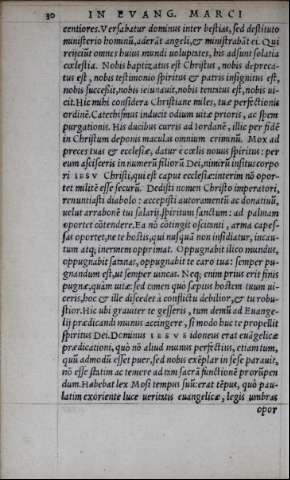 30 IN EVANG. MARCI
centiores. Versabatur dominus inter bestias, sed destituto
ministerio hominũ, aderãt angeli, & ministrabãt ei. Qui
reijciũt omnes huius mundi uoluptates, his adsunt solatia
cœlestia. Nobis baptizatus est Christus, nobis depreca-
tus est, nobis testimonio spiritus & patris insignitus est,
nobis secessit, nobis ieiunauit, nobis tentatus est, nobis ui-
cit. Hic mihi considera Christiane miles, tuæ perfectionis
ordinẽ. Catechismus inducit odium uitæ prioris, ac spem
purgationis. His ducibus curris ad Iordanẽ, illic per fidẽ
in Christum deponis maculas omnium criminũ. Mox ad
preces tuas & ecclesiæ, datur è cœlis nouus spiritus: per
eum ascisceris in numerũ filiorũ Dei, nimirũ insitus corpo
ri IESV Christi, qui est caput ecclesiæ: interim nõ opor-
tet militẽ esse securũ. Dedisti nomen Christo imperatori,
renuntiasti diabolo: accepisti autoramenti ac donatiuũ,
uelut arrabonẽ tui salarij, spiritum sanctum: ad palmam
oportet cõtendere. Ea nõ cõtingit oscitanti, arma capes-
sas oportet, ne te hostis, qui nusquã non insidiatur, incau-
tum atq; inermem opprimat. Oppugnabit illico mundus,
oppugnabit satanas, oppugnabit te caro tua: semper pu-
gnandum est, ut semper uincas. Neq; enim prius erit finis
pugnæ, quàm uitæ: sed tamen quo sæpius hostem tuum ui-
ceris, hoc & ille discedet à conflictu debilior, & tu robu-
stior. Hic ubi grauiter te gesseris, tum demũ ad Euange-
lij prædicandi munus accingere, si modo huc te propellit
spiritus Dei. Dominus IESVS idoneus erat euãgelicæ
prædicationi, quò nõ aliud munus perfectius, etiam tum,
quũ admodũ esset puer, sed nobis exẽplar in sese parauit,
nõ esse statim ac temere ad tam sacrã functionẽ prorũpen
dum. Habebat lex Mosi tempus suũ: erat tẽpus, quò pau-
latim exoriente luce ueritatis euangelicæ, legis umbras
opor